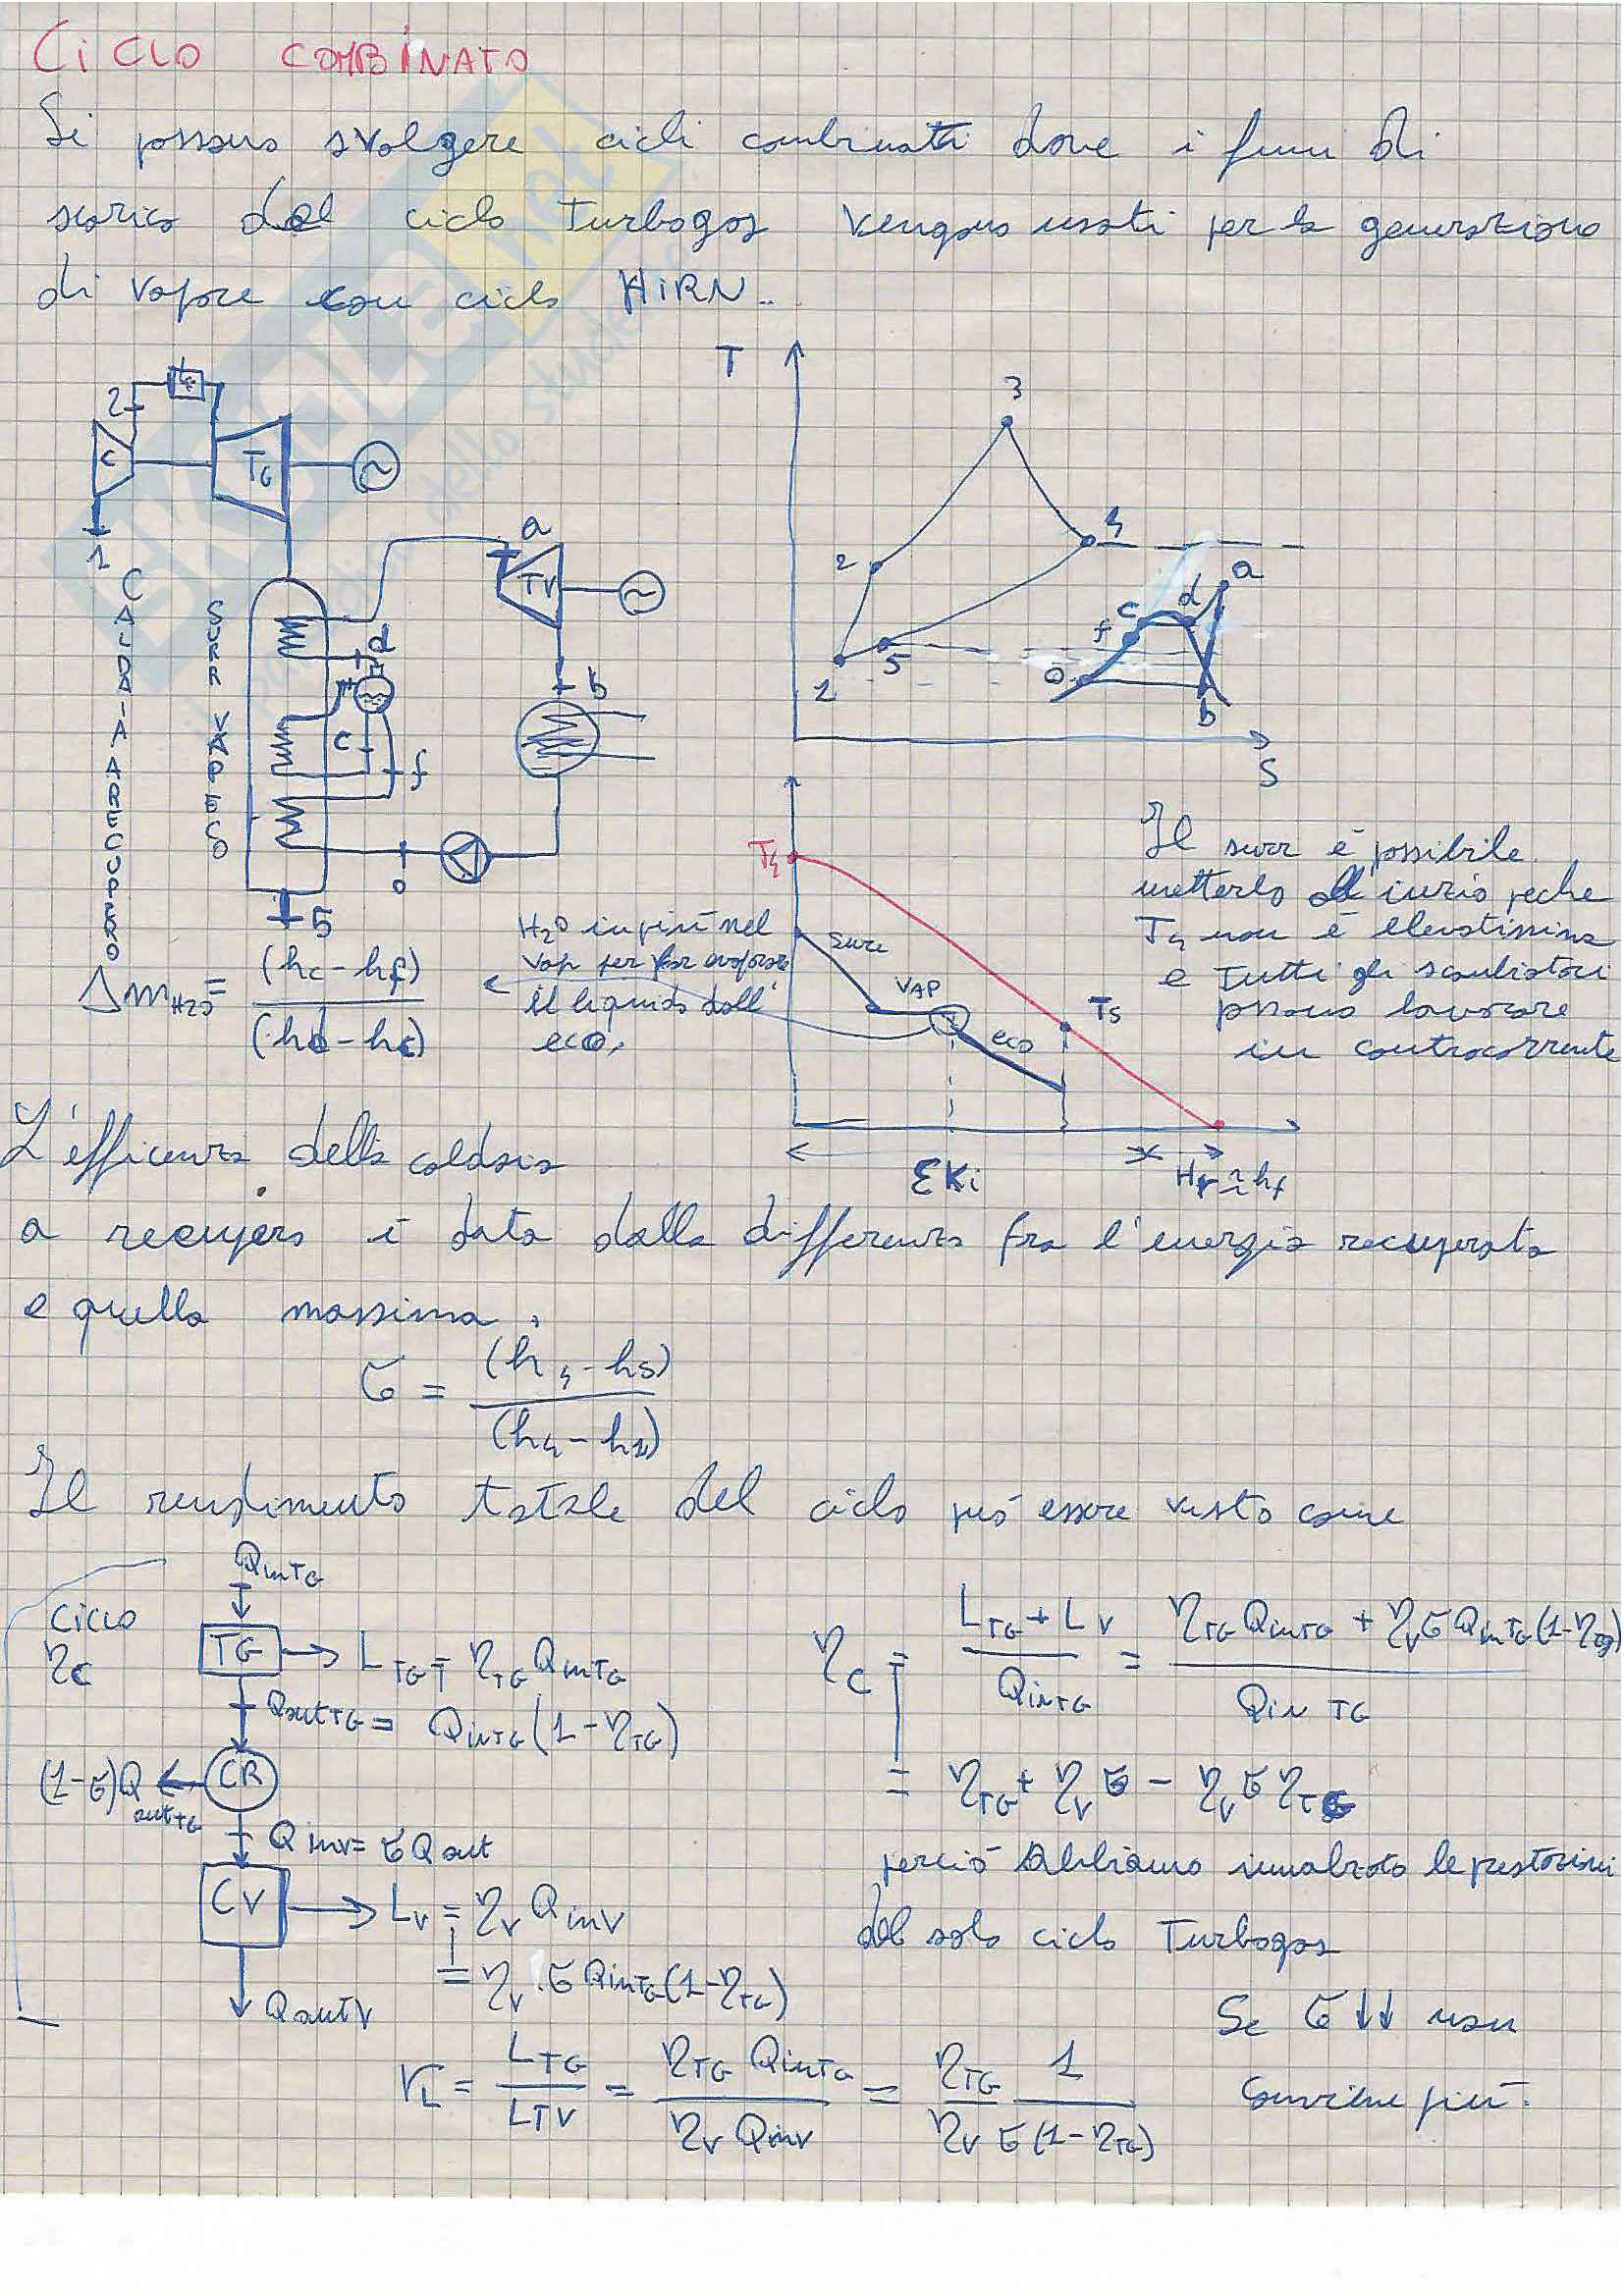 CiCLO COMBINATO
Si possono svolgere cicli combinati dove i fumi di
scarico del ciclo Turbogas vengono usati per la generazione
di vapore con ciclo HiRN.
T
3
2
4
C
TG
1
2
4
5
1
a
c
d
f
o
b
S
a
TV
d
b
c
f
o
5
CALDAIA A RECUPERO
SURR VAP ECO
T4
SURR
VAP
ECO
T5
Il surr è possibile
metterlo all'inizio perche
T4 non è elevatissima
e Tutti gli scambiatori
possono lavorare
in controcorrente
H2O in più nel
vap per far evaporare
il liquido dall'
eco.
ΔmH2O = (hc-hf) / (hd-hc)
ΣKi
L'efficenza della caldaia
a recupero è data dalla differenza fra l'energia recuperata
e quella massima.
σ = (h4-h5) / (h4-h1)
Il rendimento totale del ciclo può essere visto come
QinTG
CiCLO
ηC
TG
LTG = ηTG QinTG
QoutTG = QinTG(1-ηTG)
(1-σ)QoutTG
CR
Qinv = σQout
CV
Lv = ηv Qinv
= ηv · σ QinTG(1-ηTG)
QoutV
ηC = (LTG + LV) / QinTG = (ηTG QinTG + ηv σ QinTG(1-ηTG)) / Qin TG
= ηTG + ηv σ - ηv σ ηTG
perciò abbiamo innalzato le prestazioni
del solo ciclo Turbogas
Se σ ↓↓ non
conviene più.
rL = LTG / LTV = ηTG QinTG / ηv Qinv = ηTG / ηv 1 / σ(1-ηTG)